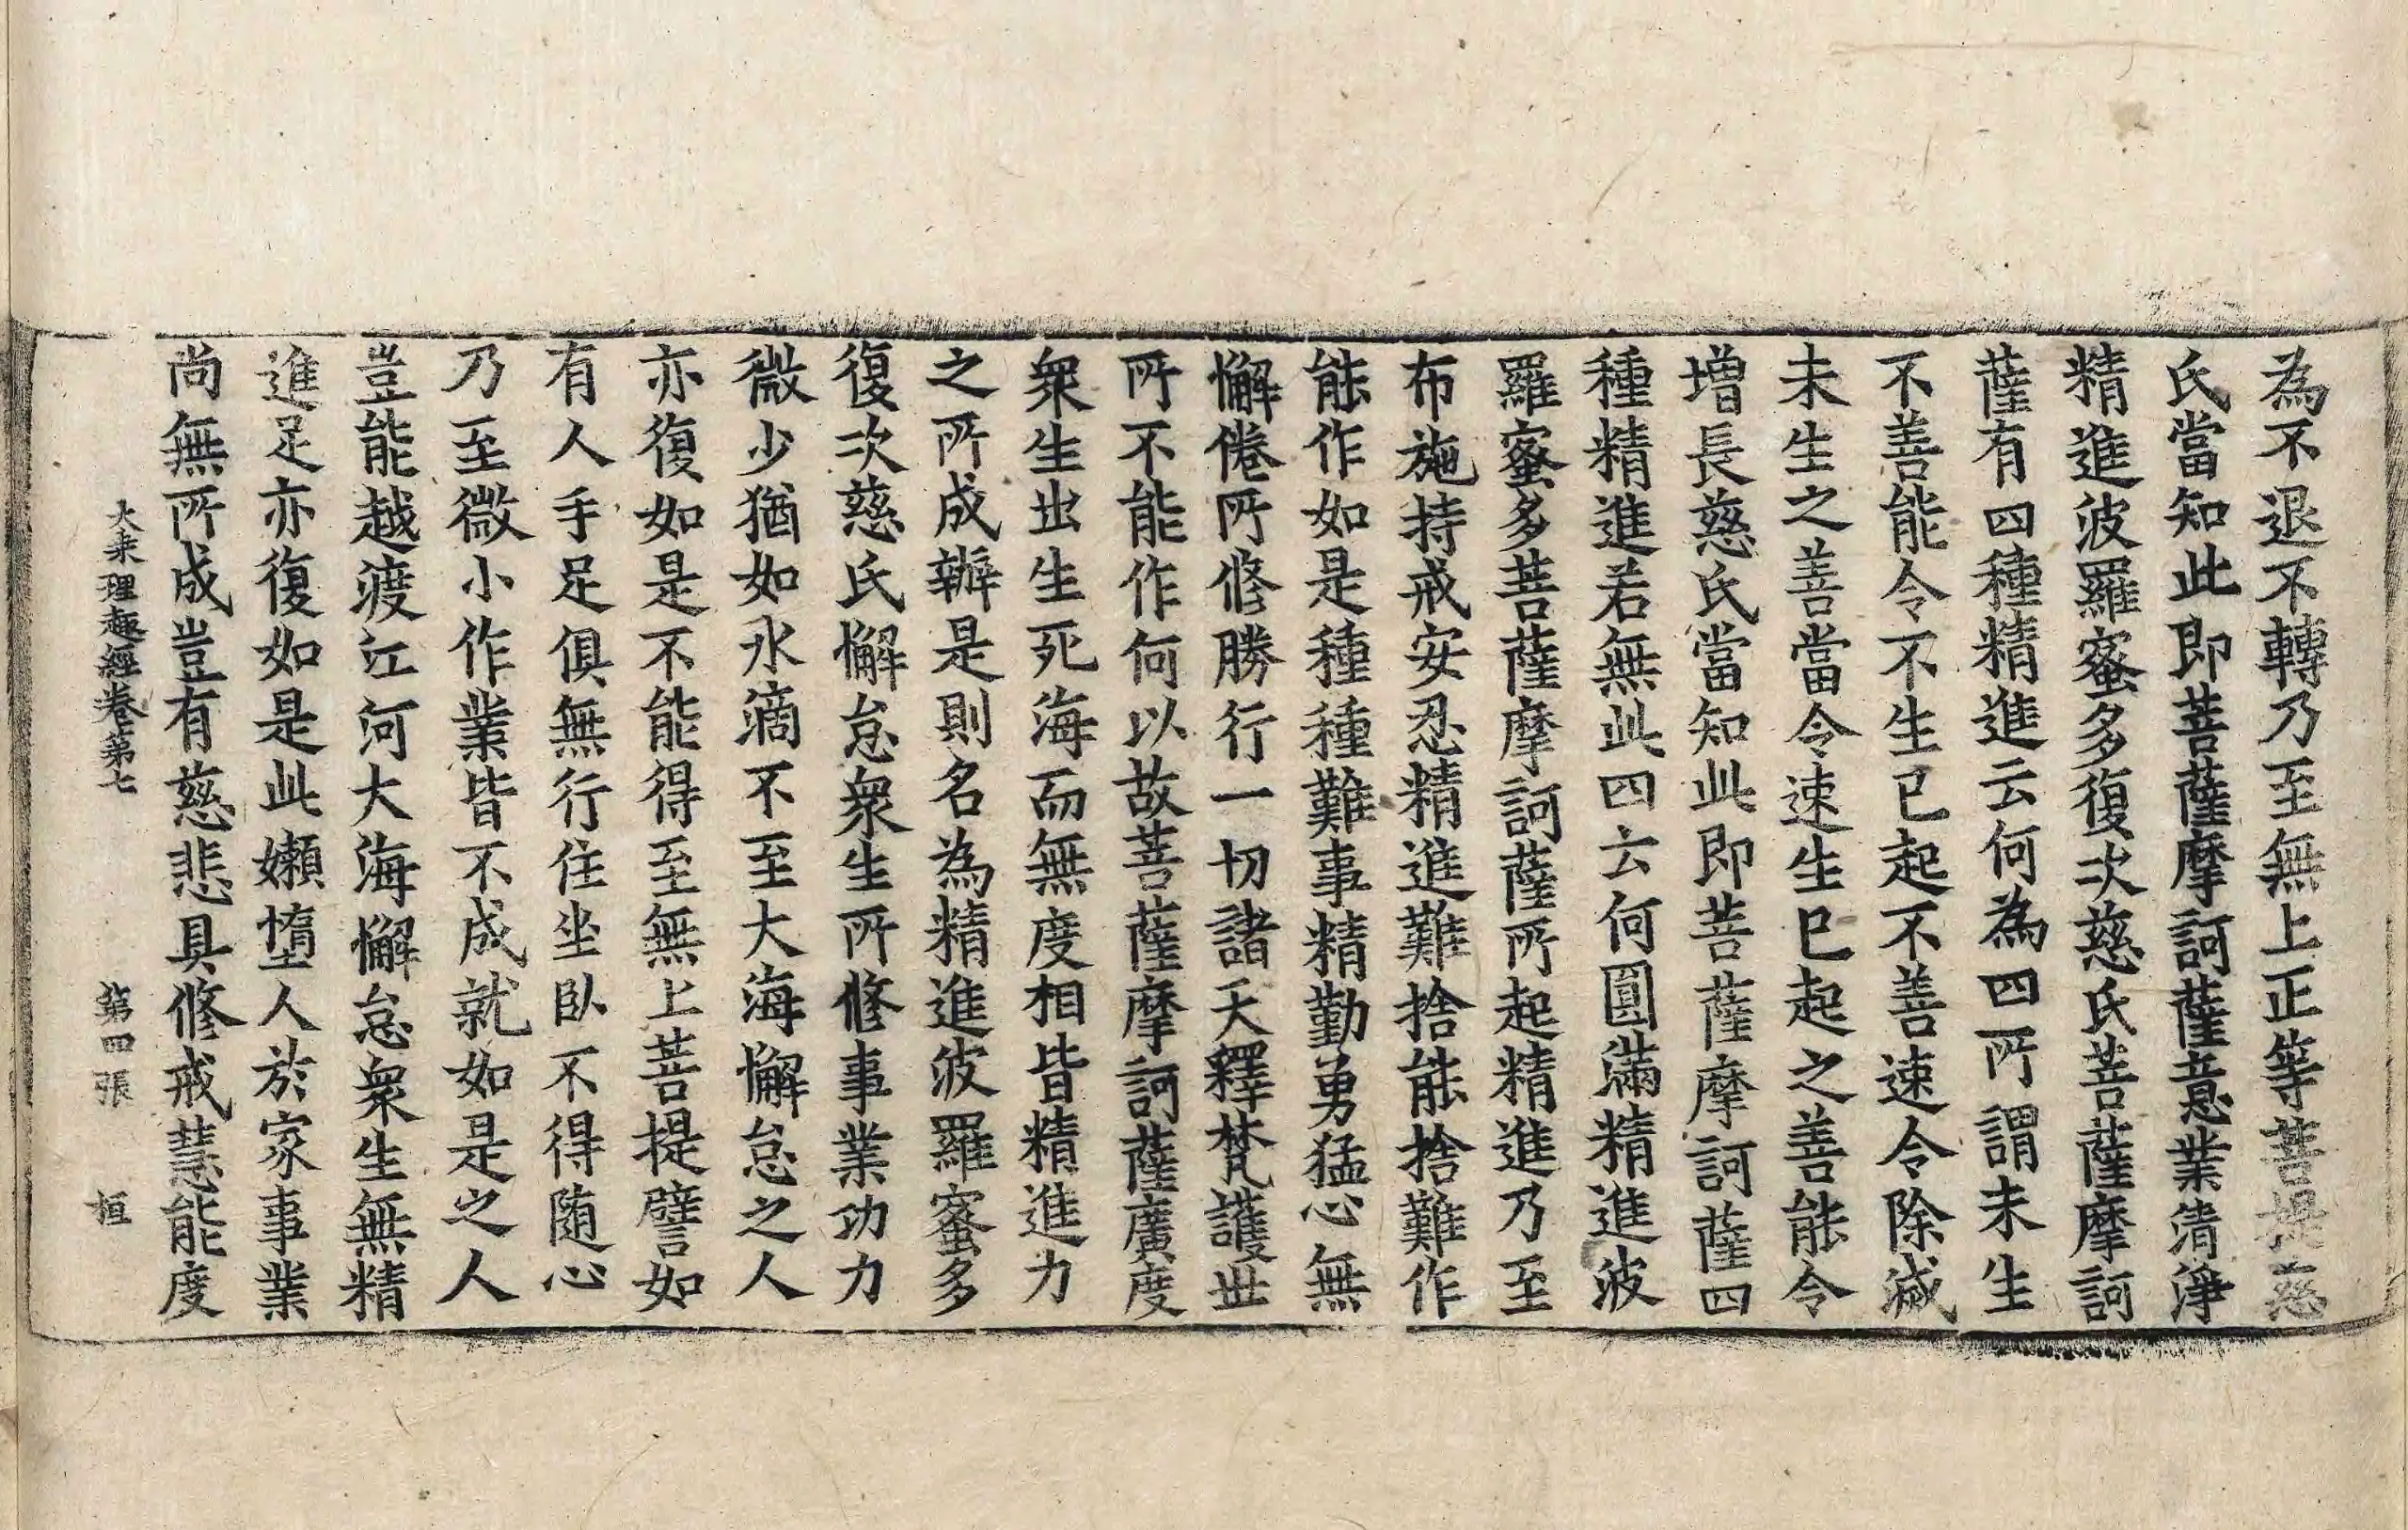 為不退不轉乃至無上正等菩提慈
氏當知此即菩薩摩訶薩意業清淨
精進波羅蜜多復次慈氏菩薩摩訶
薩有四種精進云何為四所謂未生
不善能令不生已起不善速令除滅
未生之善當令速生已起之善能令
增長慈氏當知此即菩薩摩訶薩四
種精進若無此四云何圓滿精進波
羅蜜多菩薩摩訶薩所起精進乃至
布施持戒安忍精進難捨能捨難作
能作如是種種難事精勤勇猛心無
懈倦所修勝行一切諸天釋梵護世
所不能作何以故菩薩摩訶薩廣度
衆生出生死海而無度相皆精進力
之所成辦是則名為精進波羅蜜多
復次慈氏懈怠衆生所修事業功力
微少猶如水滴不至大海懈怠之人
亦復如是不能得至無上菩提譬如
有人手足俱無行住坐臥不得随心
乃至微小作業皆不成就如是之人
豈能越渡江河大海懈怠衆生無精
進足亦復如是此嬾墮人於家事業
尚無所成豈有慈悲具修戒慧能度
大乘理趣經卷第七 第四張 桓